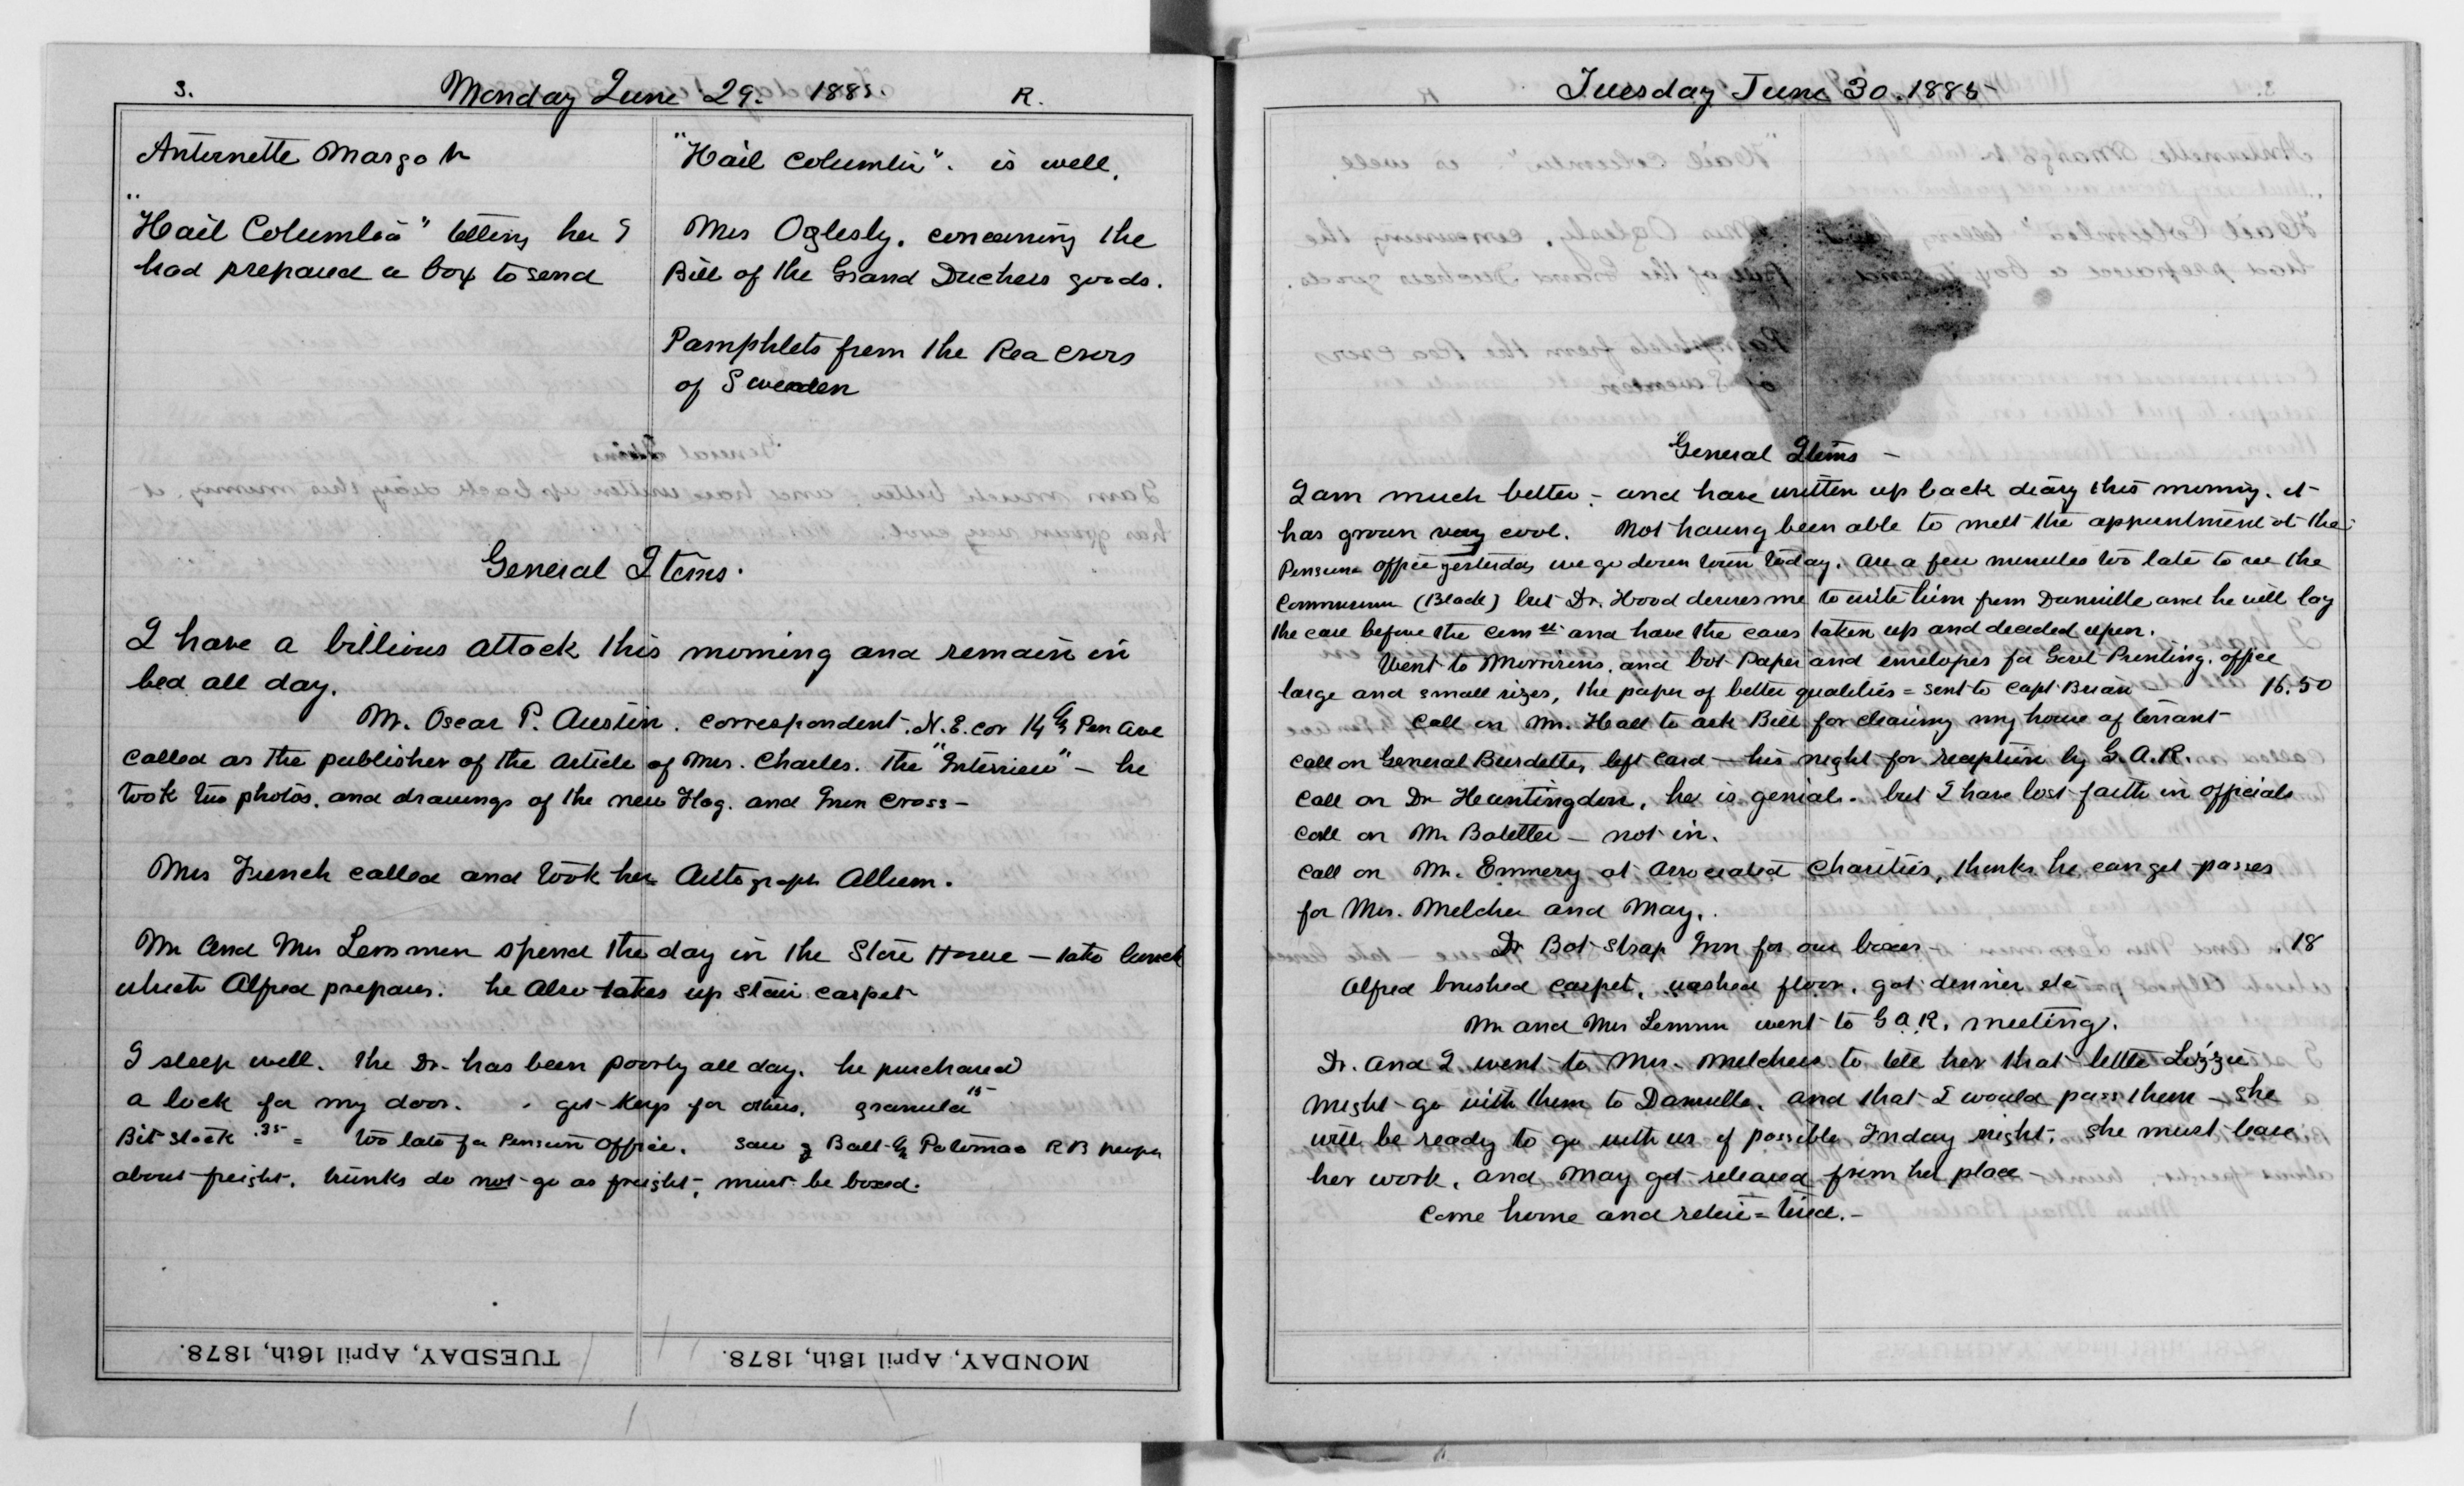 S. Monday June 29. 1885. R.
Antoinette Margot
"Hail Columbia" telling her I
had prepared a box to send
"Hail Columbia". is well.
Mrs Oglesby. concerning the
Bill of the Grand Duchess goods.
Pamphlets from the Red Cross
of Sweden
General Items.
I have a billious attack this morning and remain in
bed all day.
Mr. Oscar P. Austin. correspondent. N.E. cor 14 & Pen Ave
called as the publisher of the article of Mrs. Charles. the "Interview" — he
took two photos. and drawings of the new Flag. and Iron Cross —
Mrs French called and took her Autograph Album.
Mr and Mrs Lemmon spend the day in the Store House — take lunch
which Alfred prepares. he also takes up stair carpet
I sleep well. the Dr. has been poorly all day. he purchased
a lock for my door. get keys for others. 15
Bit stock .35 = too late for Pension Office. saw Balt & Potomac R R
about freight. trunks do not go as freight, must be boxed.
TUESDAY, April 16th, 1878. MONDAY, April 15th, 1878.
Tuesday June 30. 1885
General Items —
I am much better — and have written up back diary this morning. it
has grown very cool. Not having been able to meet the appointment at the
Pension office yesterday we go down town today. are a few minutes too late to see the
(Black) but Dr. Hood desires me to write him from Dansville and he will lay
the case before the Com and have the cases taken up and decided upon.
Went to Morrisons. and bot Paper and envelopes for Govt Printing. office
large and small sizes, the paper of better qualities = sent to Capt. Brian 16.50
Call on Mr. Hall to ask Bill for cleaning my house of tenant
Call on General Burdette, left card — his night for reception by G.A.R.
Call on Dr Huntingdon, he is genial. but I have lost faith in officials
Call on Mr — not in.
Call on Mr. Emmery at Associated Charities, thinks he can get passes
for Mrs. Melcher and May.
Dr Bot strap Iron for our boxes — .18
Alfred brushed carpet, washed floor. got dinner etc
Mr and Mrs Lemmon went to G.A.R. meeting.
Dr. and I went to Mrs. Melchers to tell her that little Lizzie
might go with them to Dansville. and that I would pass them — she
will be ready to go with us if possible Friday night. She must leave
her work, and May get released from her place —
Come home and retire = tired. —